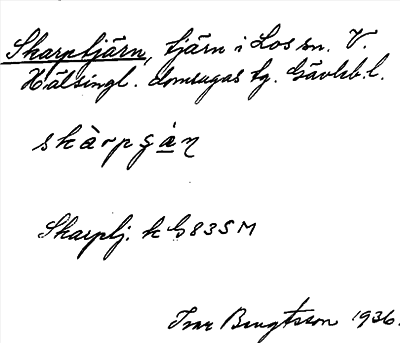 Skarptjärn, tjärn i Los sn. V.
Hälsingl. domsagas tg. Gävleb. l.
skàrpɕȧ̱ɳ
Skarptj. k G83SM
Ivar Bengtsson 1936.